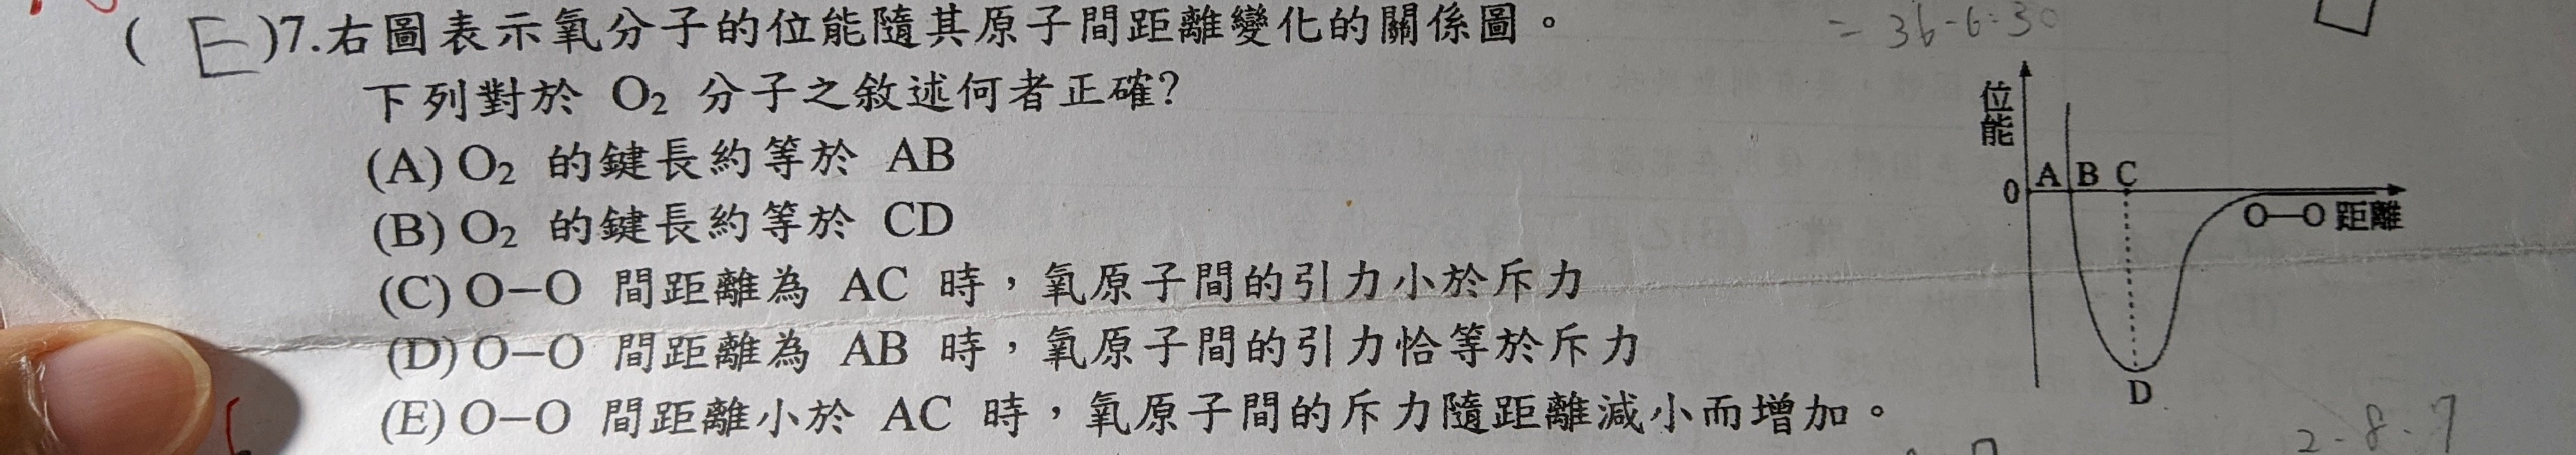 ( E )7.右圖表示氧分子的位能隨其原子間距離變化的關係圖。
下列對於 O₂ 分子之敘述何者正確?
(A) O₂ 的鍵長約等於 AB
(B) O₂ 的鍵長約等於 CD
(C) O−O 間距離為 AC 時，氧原子間的引力小於斥力
(D) O−O 間距離為 AB 時，氧原子間的引力恰等於斥力
(E) O−O 間距離小於 AC 時，氧原子間的斥力隨距離減小而增加。
= 36-6=30
位能
0 A B C
O—O 距離
D
2-8-7